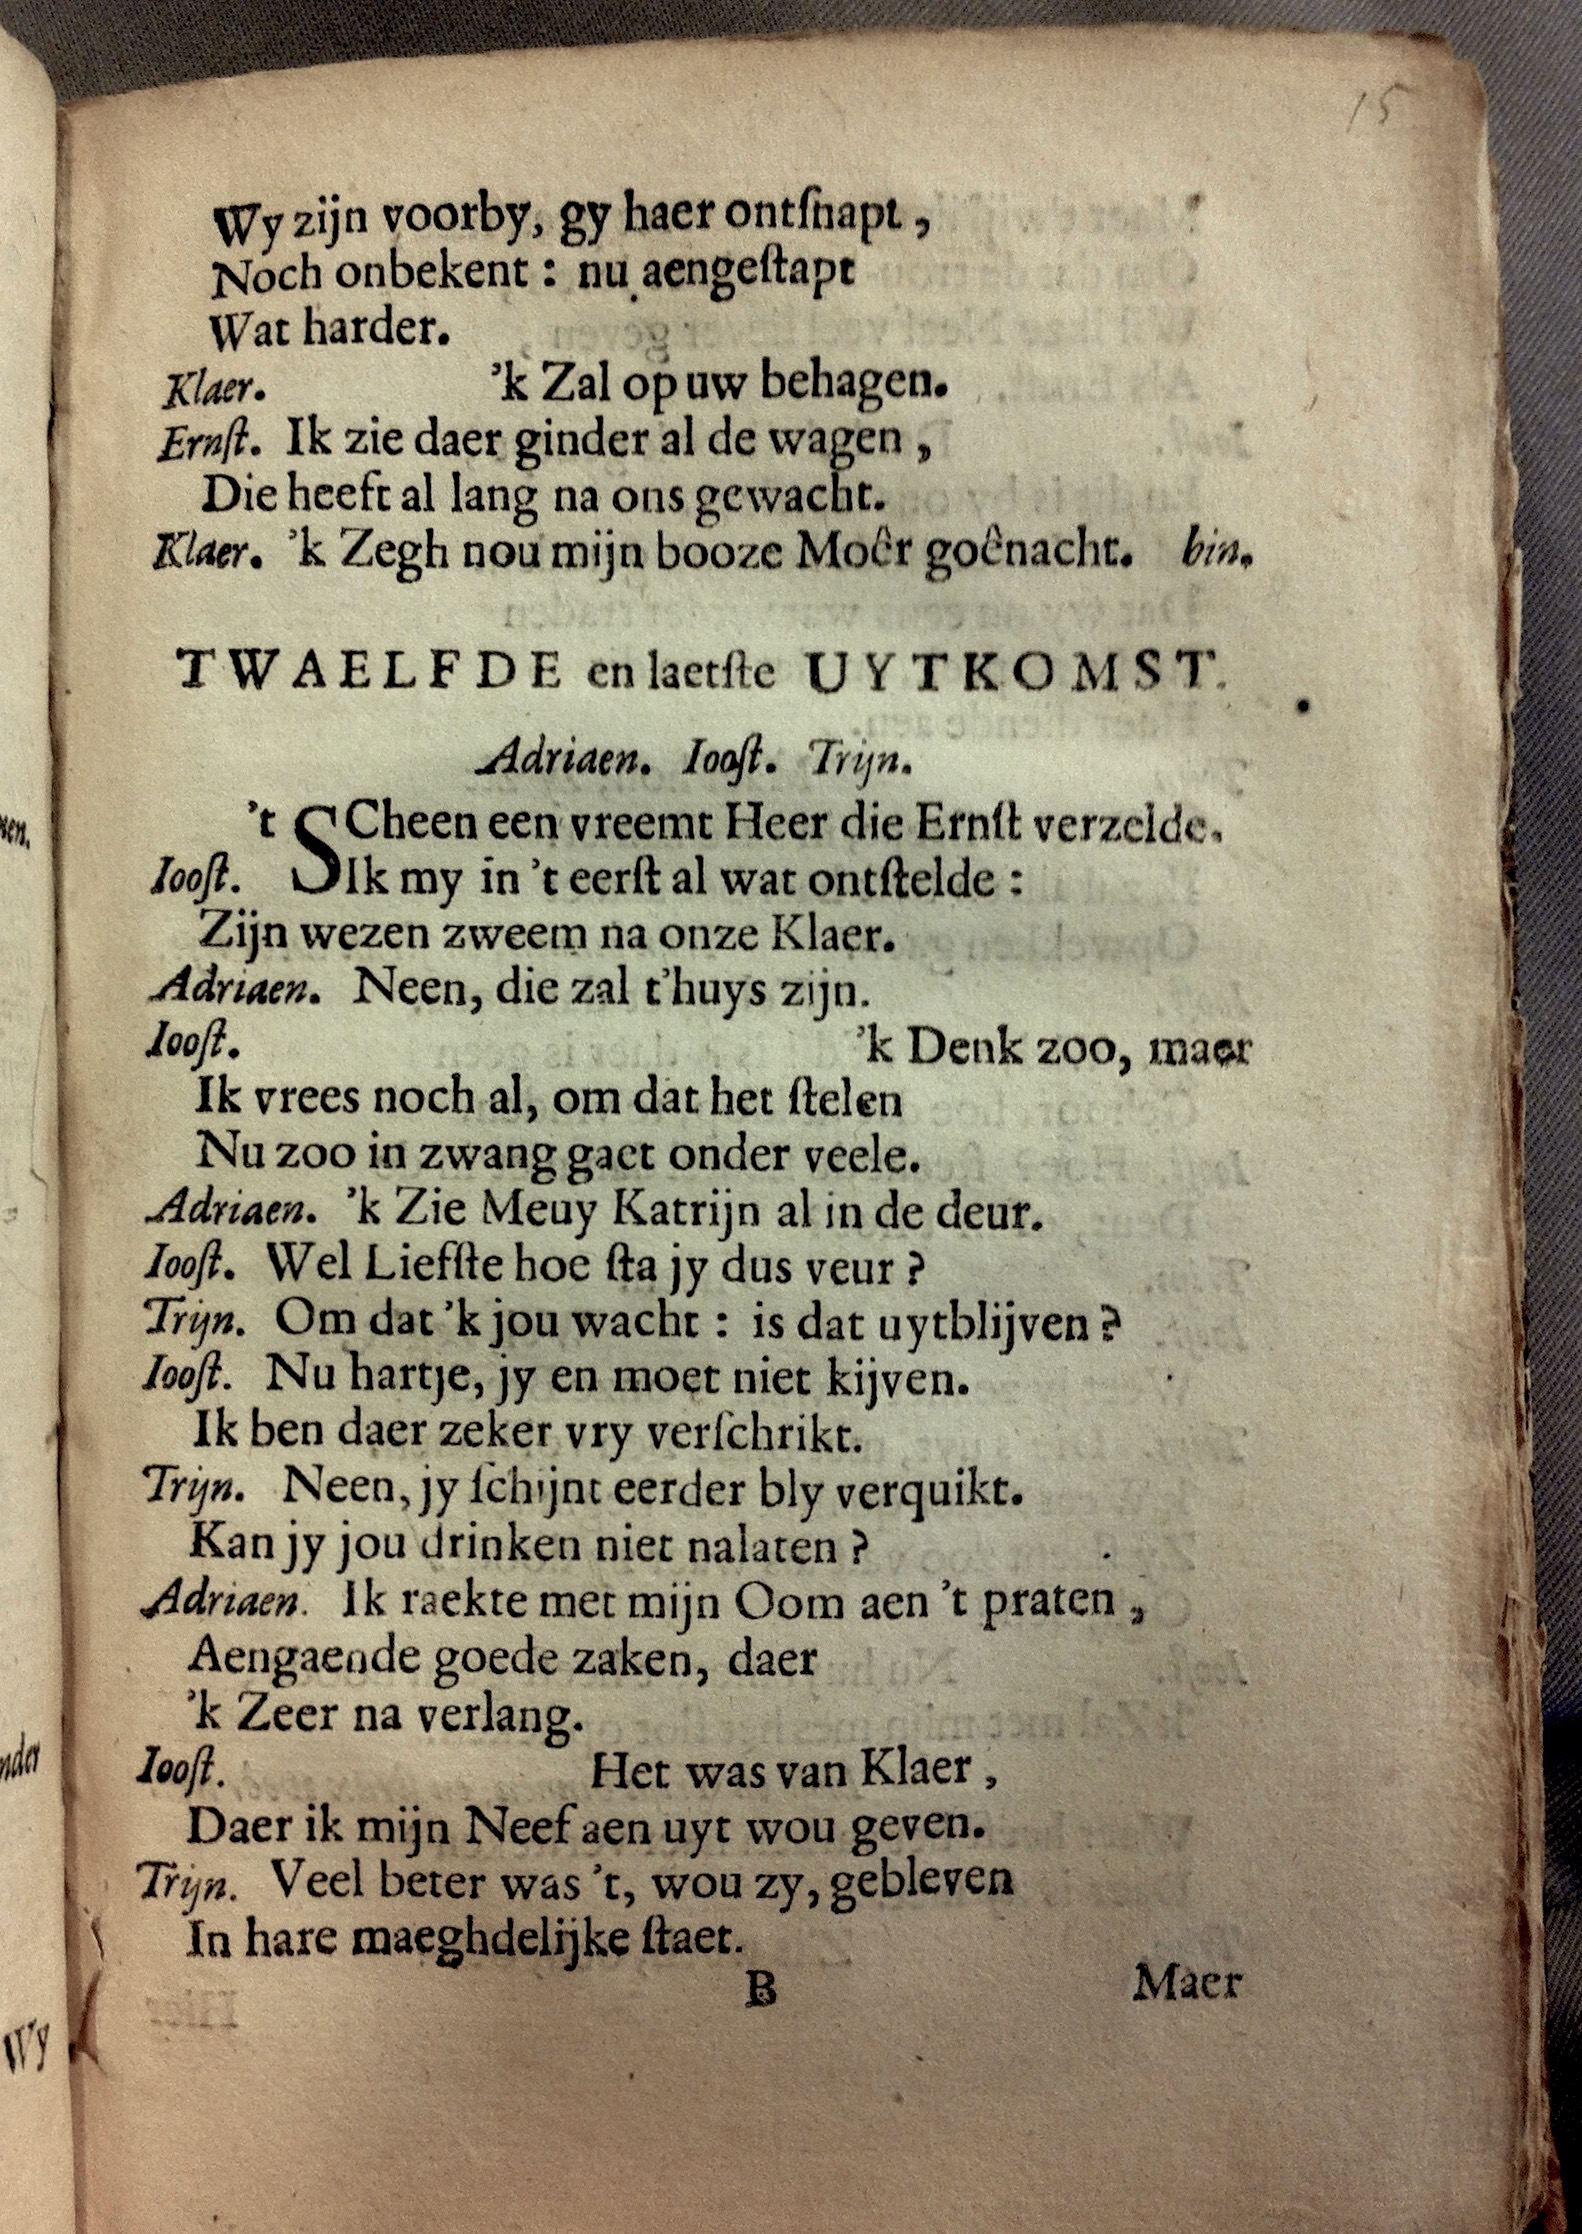 15
Wy zijn voorby, gy haer ontſnapt,
Noch onbekent : nu aengeſtapt
Wat harder.
Klaer. 'k Zal op uw behagen.
Ernſt. Ik zie daer ginder al de wagen,
Die heeft al lang na ons gewacht.
Klaer. 'k Zegh nou mijn booze Moêr goênacht. bin.
TWAELFDE en laetſte UYTKOMST.
Adriaen. Iooſt. Trijn.
't SCheen een vreemt Heer die Ernſt verzelde.
Iooſt. Ik my in 't eerſt al wat ontſtelde :
Zijn wezen zweem na onze Klaer.
Adriaen. Neen, die zal t'huys zijn.
Iooſt. 'k Denk zoo, maer
Ik vrees noch al, om dat het ſtelen
Nu zoo in zwang gaet onder veele.
Adriaen. 'k Zie Meuy Katrijn al in de deur.
Iooſt. Wel Liefſte hoe ſta jy dus veur ?
Trijn. Om dat 'k jou wacht : is dat uytblijven ?
Iooſt. Nu hartje, jy en moet niet kijven.
Ik ben daer zeker vry verſchrikt.
Trijn. Neen, jy ſchijnt eerder bly verquikt.
Kan jy jou drinken niet nalaten ?
Adriaen. Ik raekte met mijn Oom aen 't praten,
Aengaende goede zaken, daer
'k Zeer na verlang.
Iooſt. Het was van Klaer,
Daer ik mijn Neef aen uyt wou geven.
Trijn. Veel beter was 't, wou zy, gebleven
In hare maeghdelijke ſtaet.
B Maer
Wy